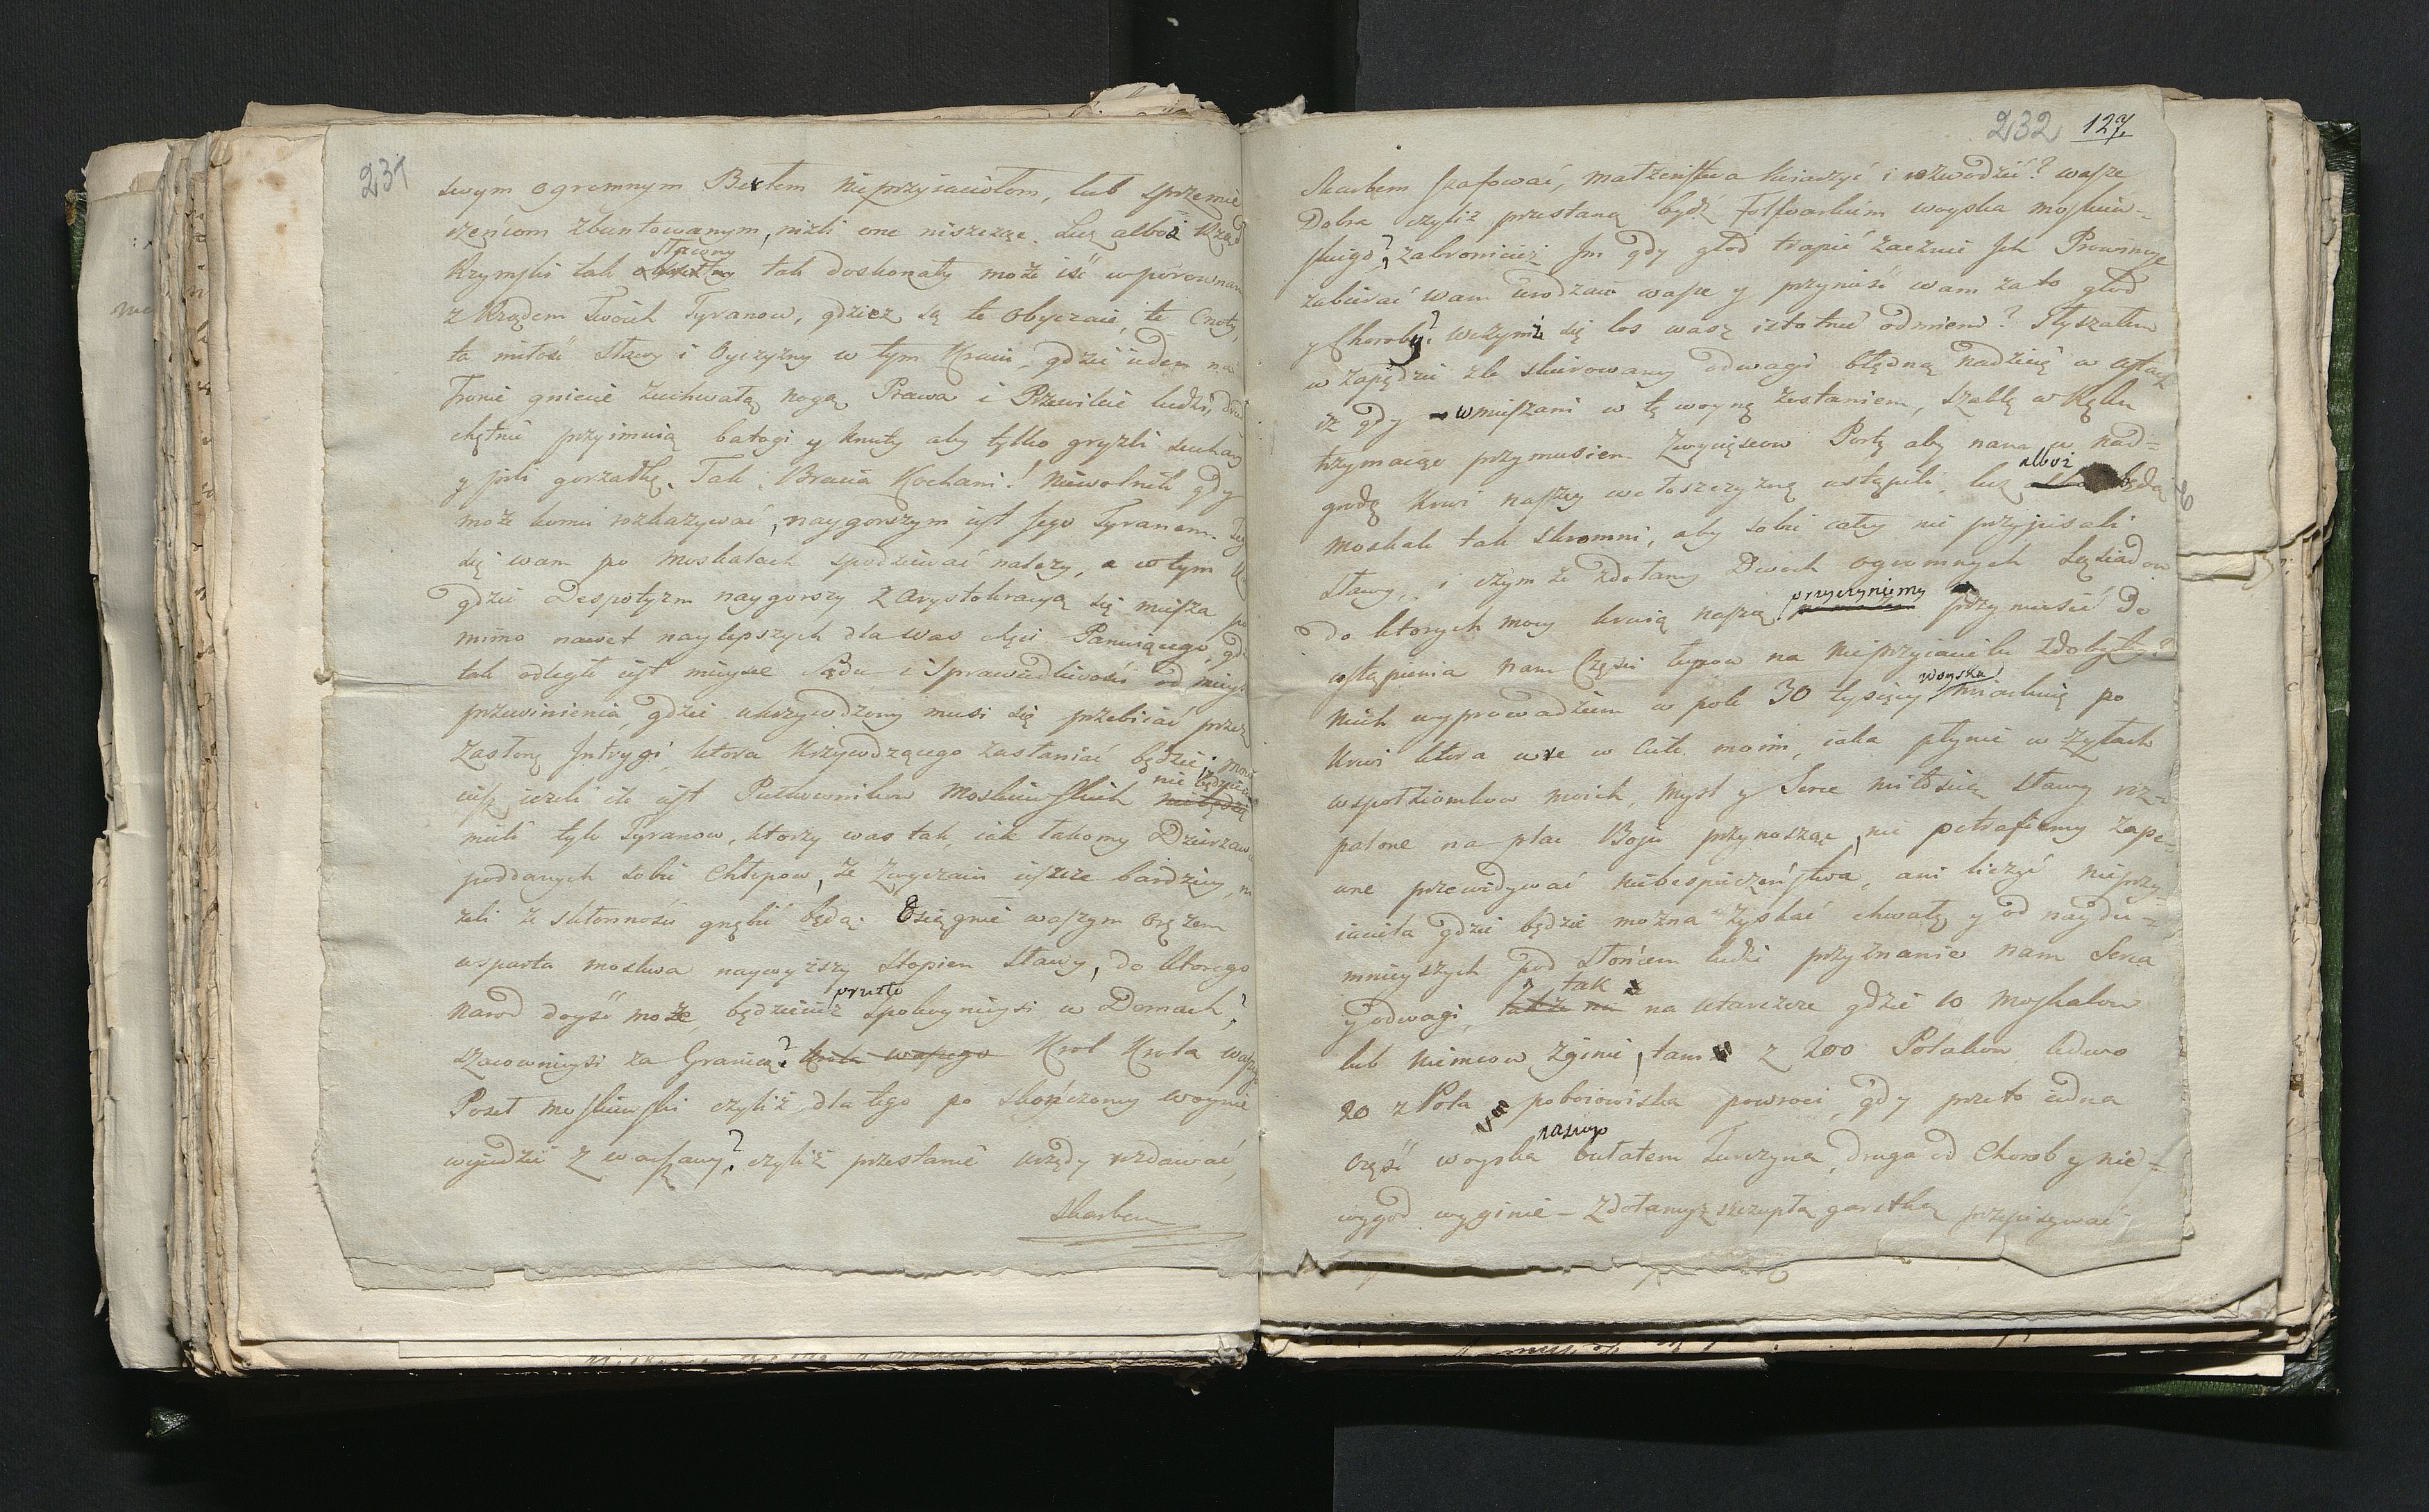 231
swym ogromnym Berłem nieprzyiaciołom, lub sprzemie
rzeńcom zbuntowanym, niżli one niszcząc. Lecz alboż Rząd
Sławny
Rzymski tak tak doskonały może iść w porownan
z Rządem Twoich Tyranow, gdzież są te Obyczaie, te Cnoty,
ta miłość Sławy i Oyczyzny w tym Kraiu, gdzie ieden na
Tronie gniecie zuchwałą nogą Prawa i Przewileie ludzi,
chętnie przyimuią batogi y knuty aby tylko gryźli suchary
y pili gorzałkę. Tak, Bracia Kochani! Niewolnik gdy
może komu rozkazywać, naygorszym iest Jego Tyranem.
się wam po moskalach spodziewać należy, a w tym
gdzie Despotyzm naygorszy z Arystokracyą się miesza
mimo nawet naylepszych dla was chęci Panuiącego, gdzie
tak odległe iest mieysce Sądu i Sprawiedliwości od mieys
przewinienia, gdzie ukrzywdzony musi się przebiiać przez
Zasłonę Intrygi, ktora Krzywdzącego zasłaniać będzie,
nie będziecie
iest Pułkownikow Moskiewskich nie będzie
mieli tyle Tyranow, ktorzy was tak, iak łakomy Dzierzawca
poddanych sobie Chłopow, ze zwyczaiu ieszcze bardziey,
żeli ze skłonności gnębić będą. Osięgnie waszym Orężem
wsparta moskwa naywyższy Stopien Sławy, do ktorego
przeto
Narod doyść może będziecież spokoynieysi w Domach?
szacownieysi za Granicą? Krola waszego Krol Krola waszego
Poseł moskiewski czyliż dla tego po skończoney woynie
wyiedzie z warszawy? czyliż przestanie urzędy rozdawać,
Skarbem

232 127
Skarbem szafować, małżeństwa kiarzyć i rozwodzić? wasze
Dobra czyliż przestaną bydź Folfarkiem woyska moskiew-
skiego? zabronicież Im gdy głod trapić zacznie Ich Prowincye
zabierać wam urodzaie wasze y przynieść wam za to głod
y Choroby? w czymże się los wasz istotnie odmieni? Słyszałem
w zapędzie zle skierowaney odwagi błędną nadzieię w ustach
iż gdy wmieszani w tę woynę zostaniem, szablę w Ręku
trzymaiąc przymusiem Zwycięscow Portę aby nam w nad-
alboż
grodę krwi naszey wołoszczyznę ustąpili, lecz będą
moskale tak skromni, aby sobie całey nie przypisali
Sławy, i czymże zdołamy Dwoch ogromnych Sąsiadow
przyczyniemy
do ktorych mocy krwią naszą przymusić do
ustąpienia nam Części łupow na nieprzyiacielu zdobytey?
woyska
niech wyprowadziem w pole 30 tysięcy miarkuię po
Krwi ktora wre w Ciele moim, iaka płynie w Żyłach
wspołziomkow moich, myśl y Serce miłością Sławy roz-
palone na plac Boju przynosząc, nie potrafiemy zape-
wne przewidywać niebespieczeństwa, ani liczyć nieprzy-
iaciela gdzie będzie można zyskać chwałę y od naydu-
mnieyszych pod słońcem ludzi przyznanie nam Serca
tak
y odwagi, na utarczce gdzie 10 moskalow
lub Niemcow zginie, tam z 200 Polakow ledwo
20 z Pola poboiowiska powroci, gdy przeto iedna
naszego
część woyska bułatem Turczyna, druga od Chorob y nied-
wygod wyginie - zdołamyż szczupłą garstką przepisywać